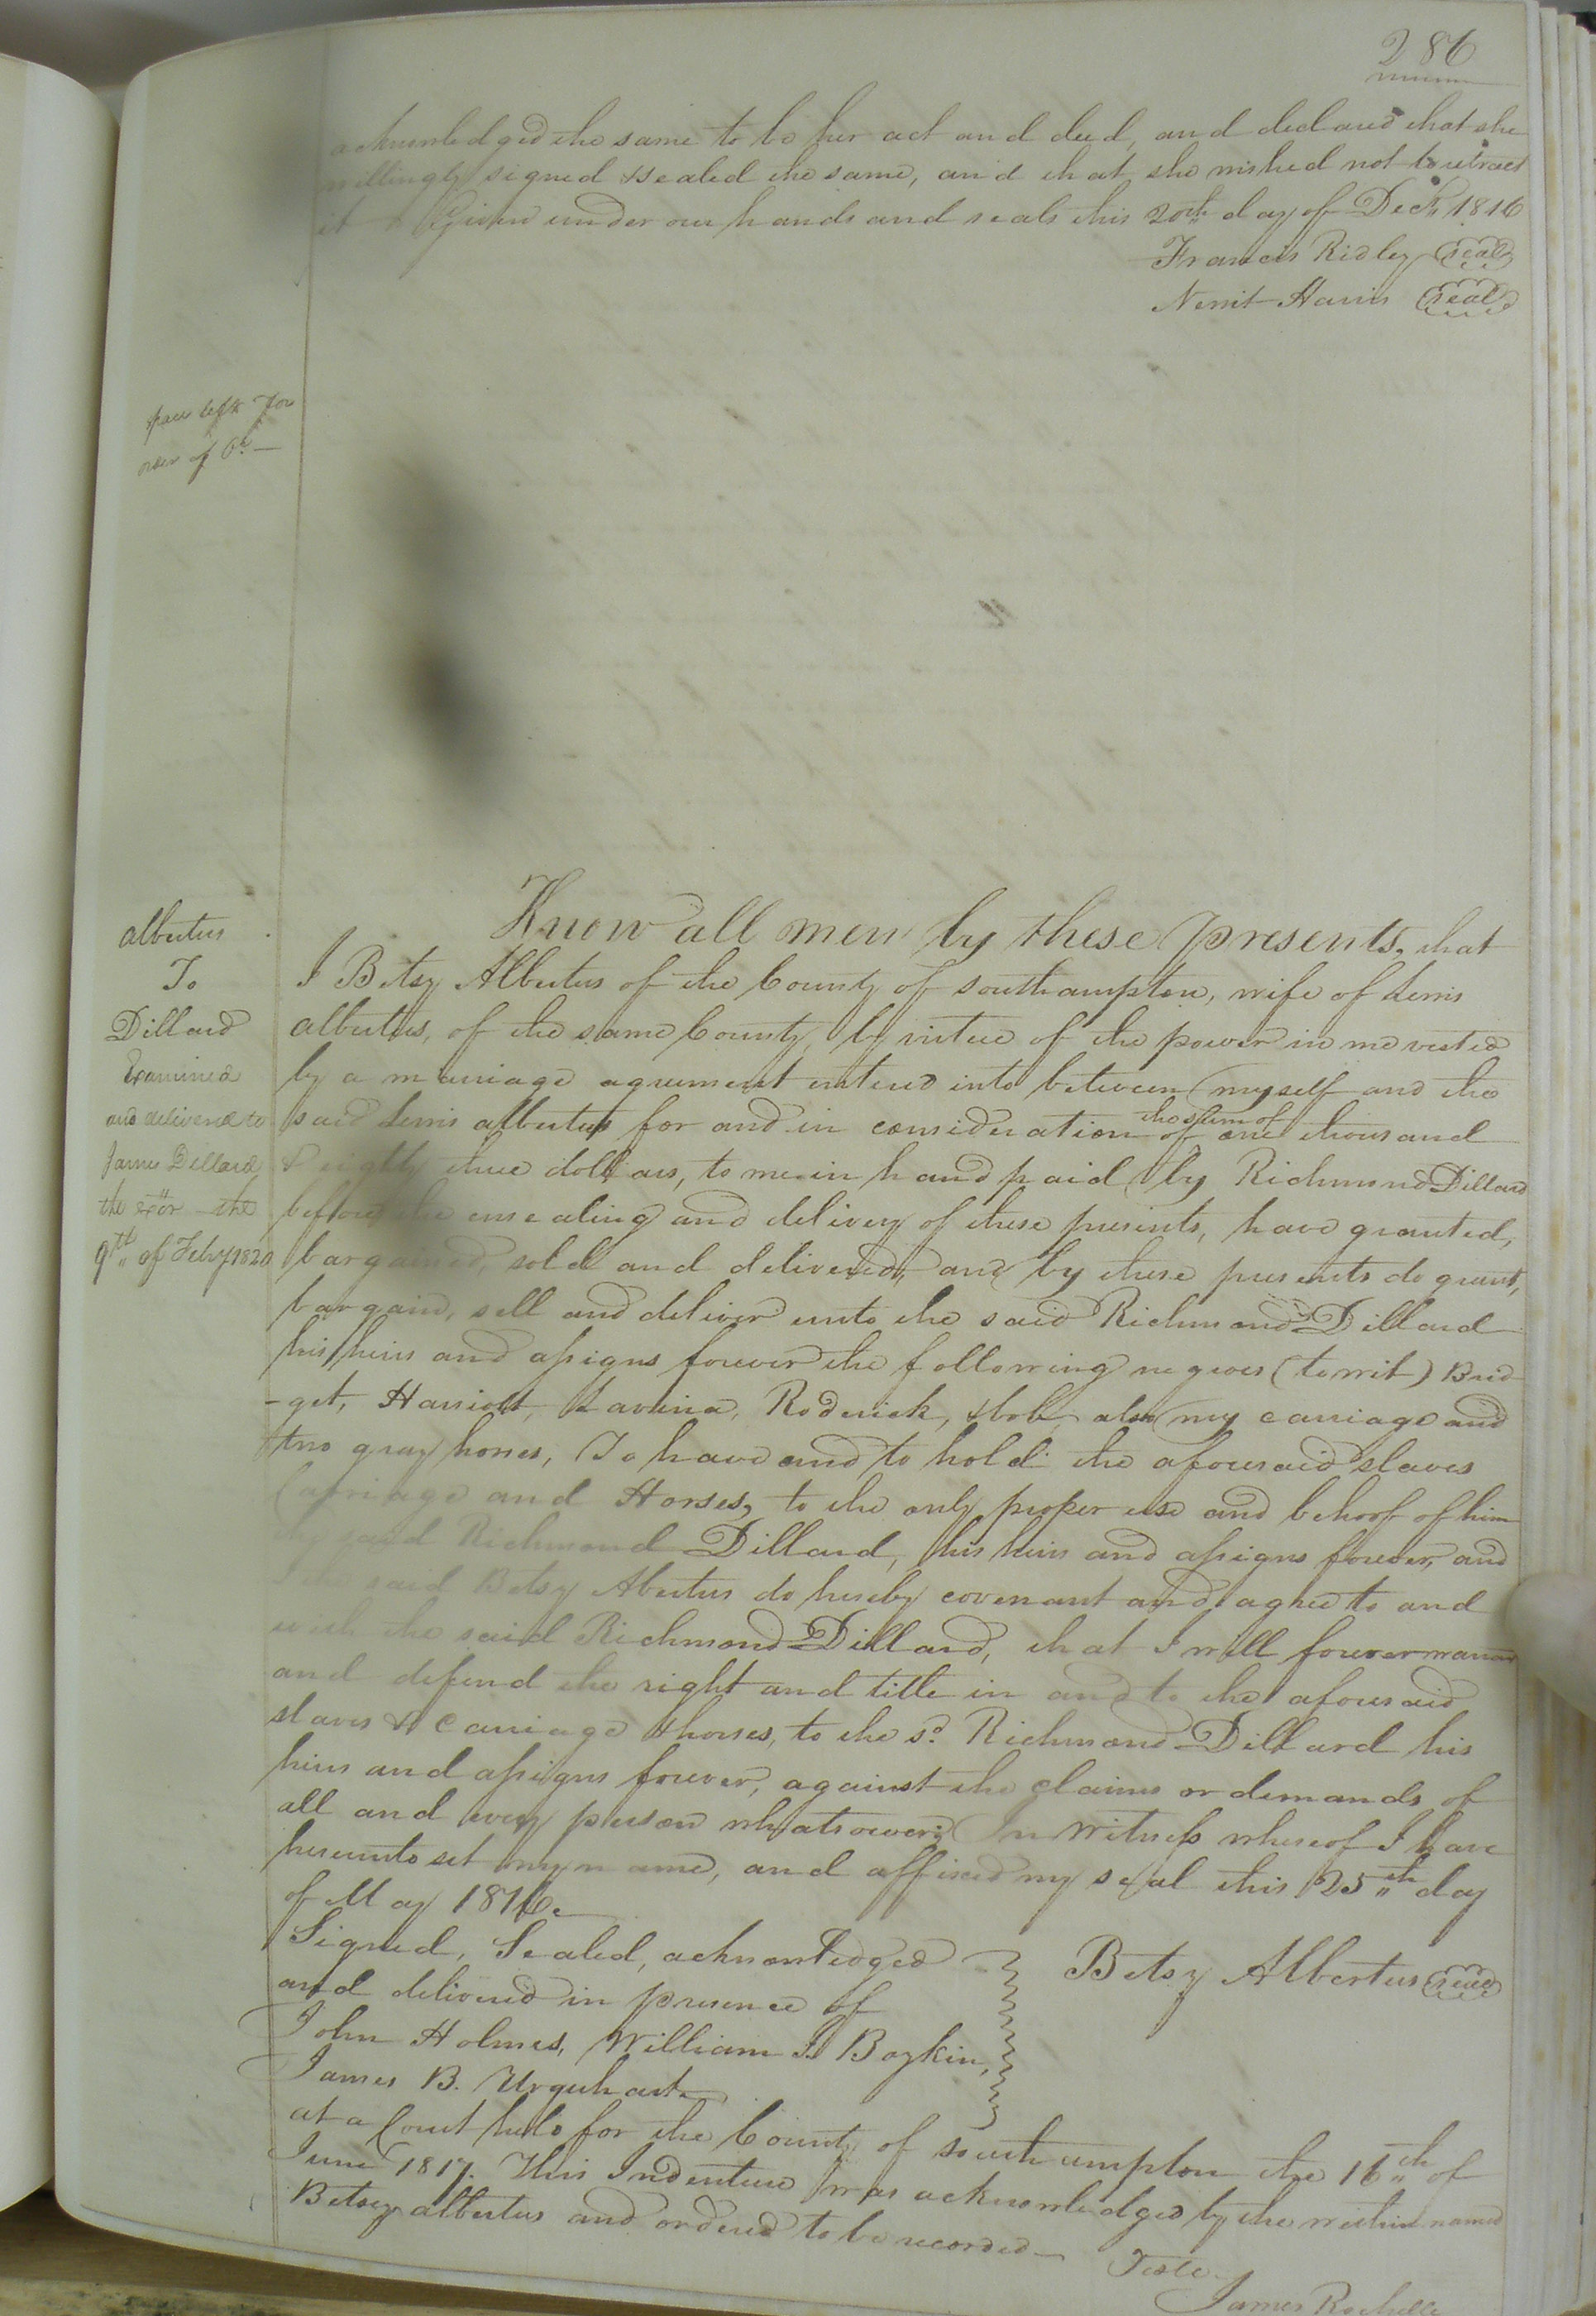 286
acknowledged the same to be her act and deed, and declared that she
willingly signed & sealed the same, and that she wished not to retract
it Given under our hands and seals this 20th day of Decr. 1816
Francis Ridley (seal)
Newit Harris (seal)
space left for
order of Ct. —
Know all men by these presents, that
albertus
To
Dillard
Examined
and delivered to
James Dillard
the exor the
9th of Feby 1820
I Betsy Albertus of the County of Southampton, wife of Lewis
albertus, of the same County, by virtue of the power in me vested
by a marriage agreement entered into between myself and the
said Lewis albertus for and in consideration of the sum of one thousand
& eighty three dollars, to me in hand paid by Richmond Dillard
before the ensealing and delivery of these presents, have granted,
bargained, sold and delivered, and by these presents do grant,
bargain, sell and deliver unto the said Richmond Dillard
his heirs and assigns forever the following negroes (to wit) Brid
-get, Harriott, Lavinia, Roderick, & bob, also my carriage and
two gray horses, To have and to hold the aforesaid slaves
Carriage and Horses, to the only proper use and behoof of him
said Richmond Dillard, his heirs and assigns forever, and
said Betsy Abertus do hereby covenant and agree to and
with the said Richmond Dillard, that I will forever warrant
and defend the right and title in and to the aforesaid
slaves & carriage & horses, to the sd. Richmond Dillard his
heirs and assigns forever, against the claims or demands of
all and every person whatsoever; In Witness whereof I have
hereunto set my name, and affixed my seal this 25th day
of May 1816.
Signed, Sealed, acknowledged
and delivered in presence of
John Holmes, William Boykin,
James B. Urquhart
Betsy Albertus (seal)
at a Court held for the County of Southampton the 16th of
June 1817. This Indenture was acknowledged by the within named
Betsey albertus and ordered to be recorded —
Teste
James Rochelle